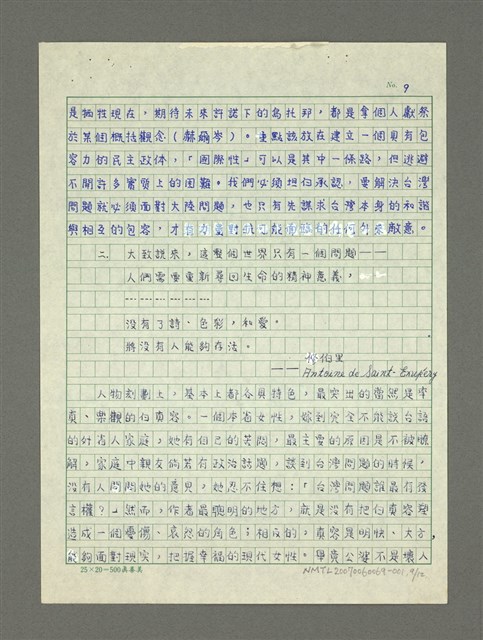 No. 9
是犧牲現在，期待未來許諾下的烏托邦，都是拿個人獻祭
於某個概括觀念（赫爾岑）。重點該放在建立一個更有包
容力的民主政体，「國際性」可以是其中一條路，但逃避
不開許多實質上的困難。我們必須坦白承認，要解決台灣
問題就必須面對大陸問題，也只有先謀求台灣本身的和諧
與相互的包容，才有力量對抗可能面臨的任何外來敵意。
二、大致說來，這整個世界只有一個問題——
人們需要重新尋回生命的精神意義，
------
沒有了詩、色彩，和愛。
將沒有人能夠存活。
修伯里
——Antoine de Saint-Exupéry
人物刻劃上，基本上都各具特色，最突出的當然是率
真、樂觀的伯真容。一個本省女性，嫁到完全不能談台語
的外省人家庭，她有自己的苦悶，最主要的原因是不被瞭
解，家庭中親友倘若有政治話題，談到台灣問題的時候，
沒有人問問她的意見，她忍不住想：「台灣問題誰最有發
言權？」然而，作者最聰明的地方，就是沒有把伯真容塑
造成一個憂傷、哀怨的角色；相反的，真容是明快、大方，
能夠面對現實，把握幸福的現代女性。畢竟公婆不是壞人
25×20=500真善美
NMTL20070060069-001 9/12